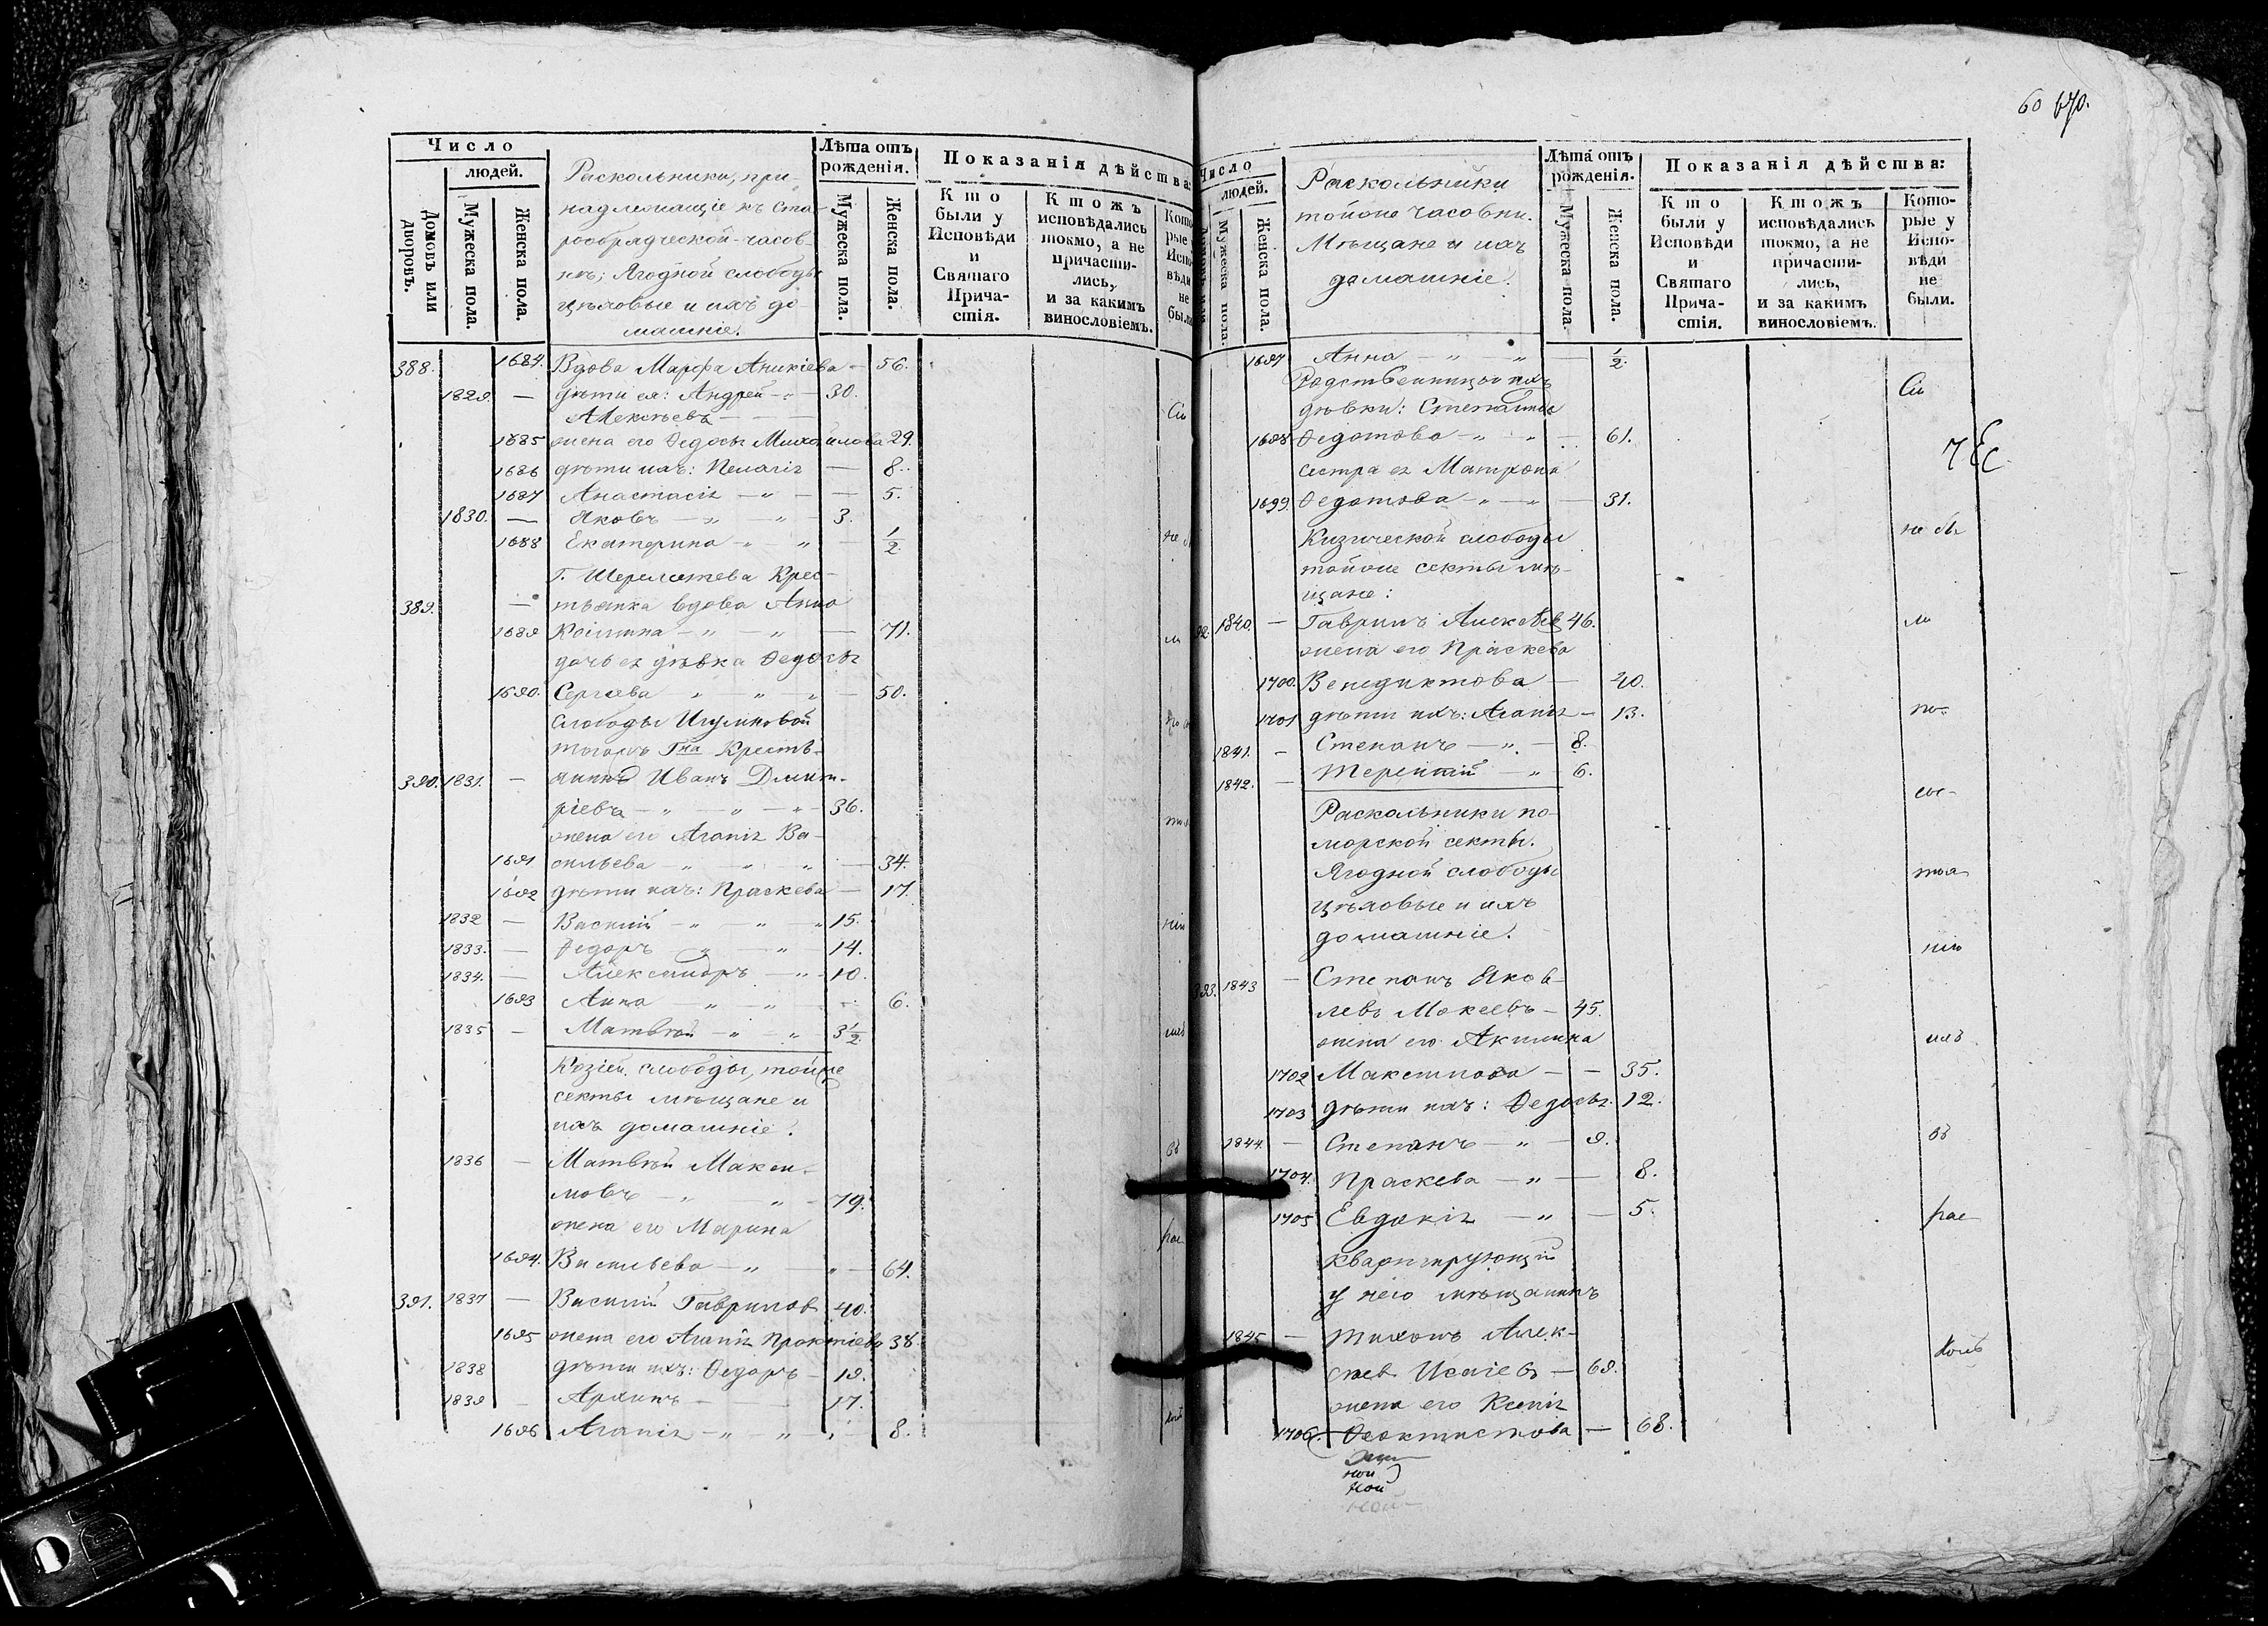 Число
людей.
Домовъ или дворовъ.
Мужеска пола.
Женска пола.
Раскольники, при-
надлежащіе къ Ста-
рообрядческой часов-
нѣ; Ягодной слободы
цѣховые и ихъ до
машніе.
Лѣта отъ рожденія.
Мужеска пола.
Женска пола.
Показанія дѣйства:
Кто были у Исповѣди и Святаго Причастія.
Ктожъ исповѣдались токмо, а не причастились, и за какимъ винословіемъ.
Кото
рые
Испо
вѣди
не
были
388. 1684. Вдова Марфа Аникіева — 56.
1829. — дѣти ея: Андрей — 30.
Алексѣевъ
1685 жена его Ѳедосья Михайлова 29.
1686 дѣти ихъ: Пелагія — 8.
1687 Анастасія — " — — 5.
1830. — Яковъ — " — " — 3.
1688 Екатерина — " — 1/2
Г. Шереметева Крес-
389. — тьянка вдова Анна
1689 — " — " — 71.
дочь ея дѣвка Ѳедосья
1690. Сергѣева " " " — 50.
слободы Игумновой
тогожъ Гна Кресть-
390. 1831. — янинъ Иванъ Дмит-
ріевъ — " — " — " — 36.
жена его Агапія Ва-
1691 сильева — " — " " — 34.
1692 дѣти ихъ: Праскева — 17.
1832 — Василій — " — " — " 15.
1833. — Ѳедоръ — " — " 14.
1834. — Александръ — " — 10.
1693 Анна — " — " — 6.
1835 — Матвѣй — " — " 3 1/2
Козіей слободы, тойже
секты мѣщане и
ихъ домашніе.
1836 — Матвѣй Макси-
мовъ — " " — 79.
жена его Марина
1694. Васильева — " — " — 64.
391. 1837 — Василій Гаврилов 40.
1695 жена его Агапія 38
1838 дѣти ихъ: Ѳедоръ — 19.
1839 — Архипъ — 17.
1696 Агапія — " — " — 8.
Сіи
не б
ли
по
ста
нію
ихъ
въ
рас
коль
60 670.
Число
людей.
Мужеска пола.
Женска пола.
Раскольники
тойже часовни.
Мѣщане и ихъ
домашніе.
Лѣта отъ рожденія.
Мужеска пола.
Женска пола.
Показанія дѣйства:
Кто были у Исповѣди и Святаго Причастія.
Ктожъ исповѣдались токмо, а не причастились, и за какимъ винословіемъ.
Которые у Исповѣди не были.
1697 Анна — " — " — 1/2.
Родственницы ихъ
дѣвки: Степанида
1698 Ѳедотова — " " — 61.
сестра ея Матрона
1699. Ѳедотова — " — " — 31.
Кизической слободы
тойже секты мѣ-
щане:
92. 1840. — Гаврилъ Алексѣев 46.
жена его Праскева
1700. Венедиктова — 40.
1701 дѣти ихъ: Агапія — 13.
1841. — Степанъ — " — 8.
1842. — Терентій — " — 6.
Раскольники по-
морской секты.
Ягодной слободы
цѣховые и ихъ
домашніе.
393. 1843 — Степанъ Яков-
левъ Мокеевъ — 45.
жена его Акилина
1702 Максимова — — 35.
1703 дѣти ихъ: Ѳедосья. 12.
1844. — Степанъ — " — 9.
1704. Праскева — " — 8.
1705 Евдокія — " — 5.
квартирующій
у него мѣщанинъ
1845 — Тихонъ Алек-
сѣев Исаіевъ — 69.
жена его Ксенія
1706. Ѳеоктистова — 68.
ной
ной
Сіи
не бы
ли
по
сос-
тоя
нію
ихъ
въ
рас
колѣ